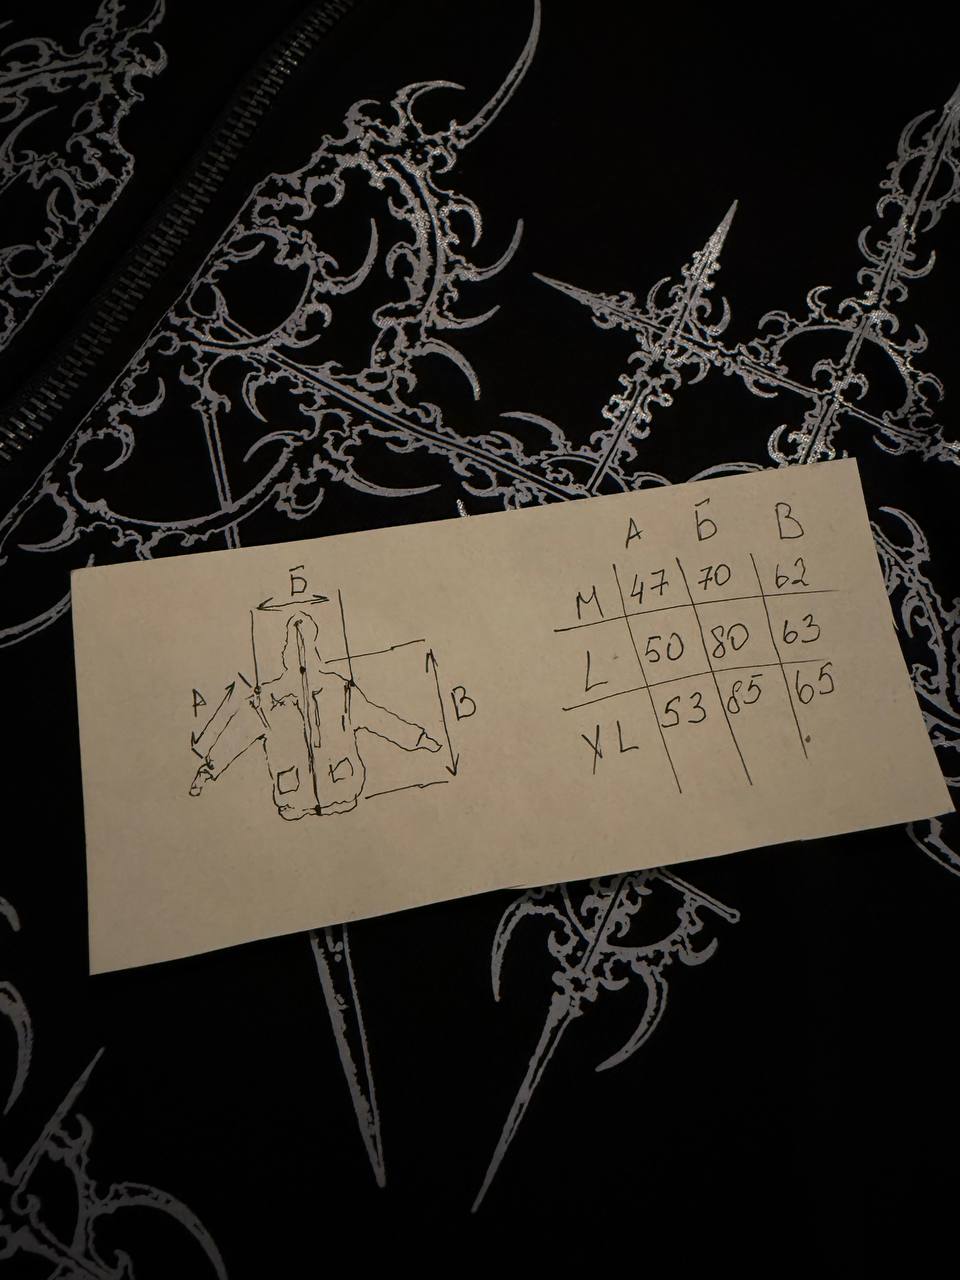 Б
А
В
А Б В
М 47 70 62
L 50 80 63
XL 53 85 65